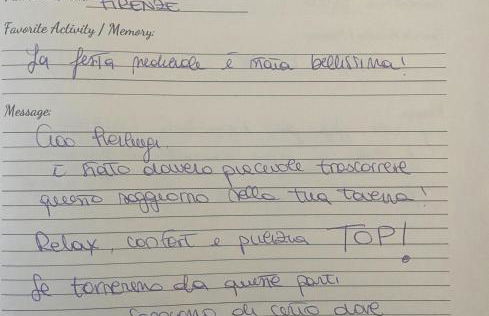 FIRENZE
Favorite Activity / Memory:
La festa medievale è stata bellissima!
Message:
Ciao Pierluigi.
È stato davvero piacevole trascorrere
questo soggiorno nella tua taverna!
Relax, confort e pulizia TOP!
Se torneremo da queste parti
sapremo di certo dove